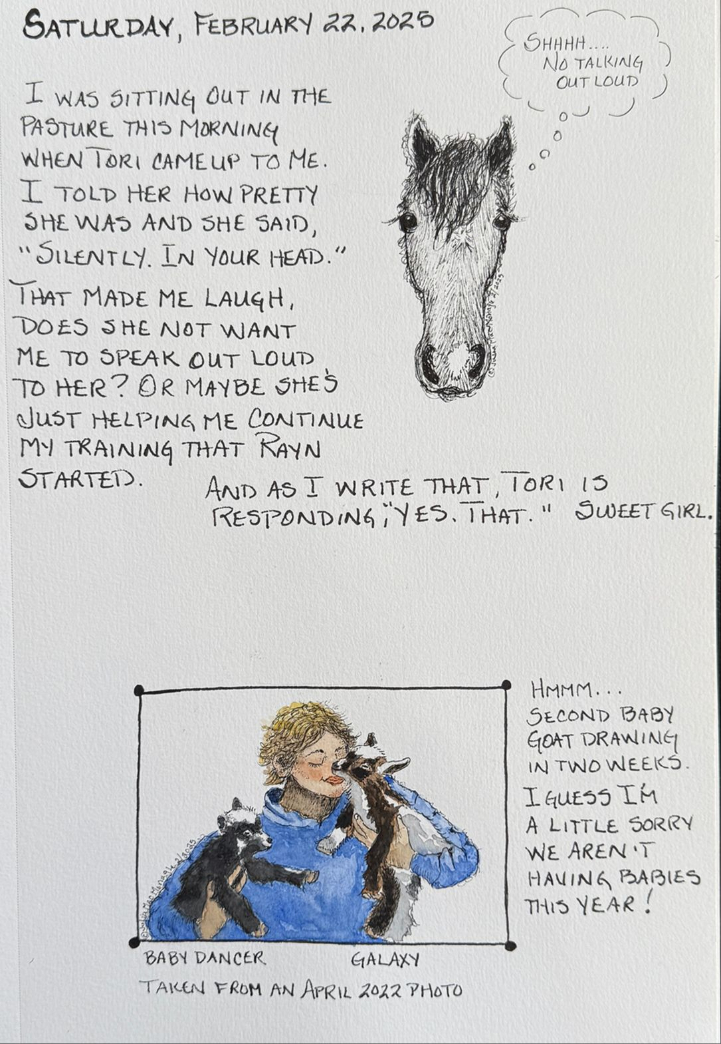 SATURDAY, FEBRUARY 22, 2025
SHHHH....
NO TALKING
OUT LOUD
I WAS SITTING OUT IN THE
PASTURE THIS MORNING
WHEN TORI CAME UP TO ME.
I TOLD HER HOW PRETTY
SHE WAS AND SHE SAID,
"SILENTLY. IN YOUR HEAD."
THAT MADE ME LAUGH,
DOES SHE NOT WANT
ME TO SPEAK OUT LOUD
TO HER? OR MAYBE SHE'S
JUST HELPING ME CONTINUE
MY TRAINING THAT RAYN
STARTED.
AND AS I WRITE THAT, TORI IS
RESPONDING, "YES. THAT." SWEET GIRL.
HMMM...
SECOND BABY
GOAT DRAWING
IN TWO WEEKS.
I GUESS I'M
A LITTLE SORRY
WE AREN'T
HAVING BABIES
THIS YEAR!
BABY DANCER GALAXY
TAKEN FROM AN APRIL 2022 PHOTO